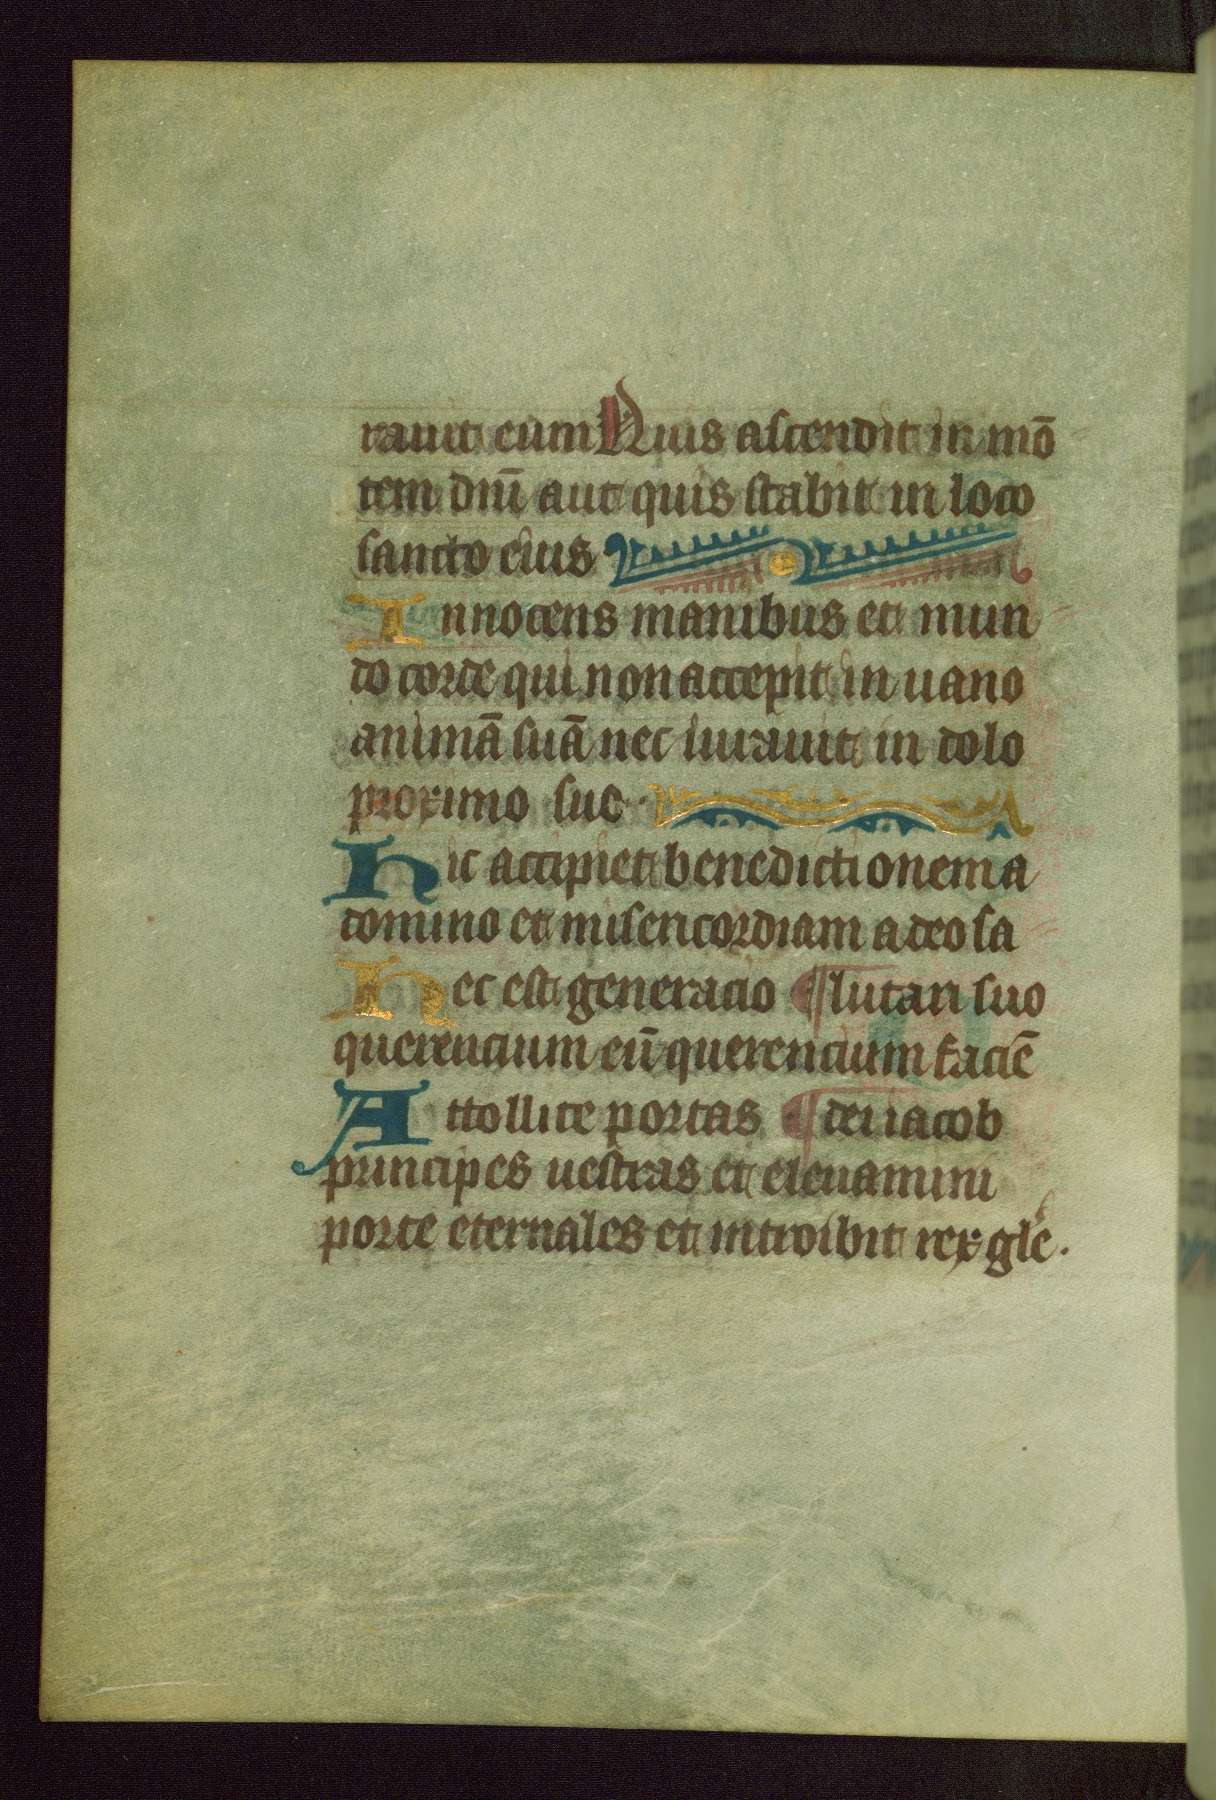 rauit eum Quis ascendit in mō
tem dn̄i aut quis stabit in loco
sancto eius
Innocens manibus et mun
do corde qui non accepit in uano
animā suā nec iurauit in dolo
proximo suo
Hic accipiet benedictionem a
domino et misericordiam a deo sa
Hec est generacio ¶ lutari suo
querencium eū querencium faciē
Attollite portas ¶ dei iacob
principes uestras et eleuamini
porte eternales et introibit rex gl̄e.